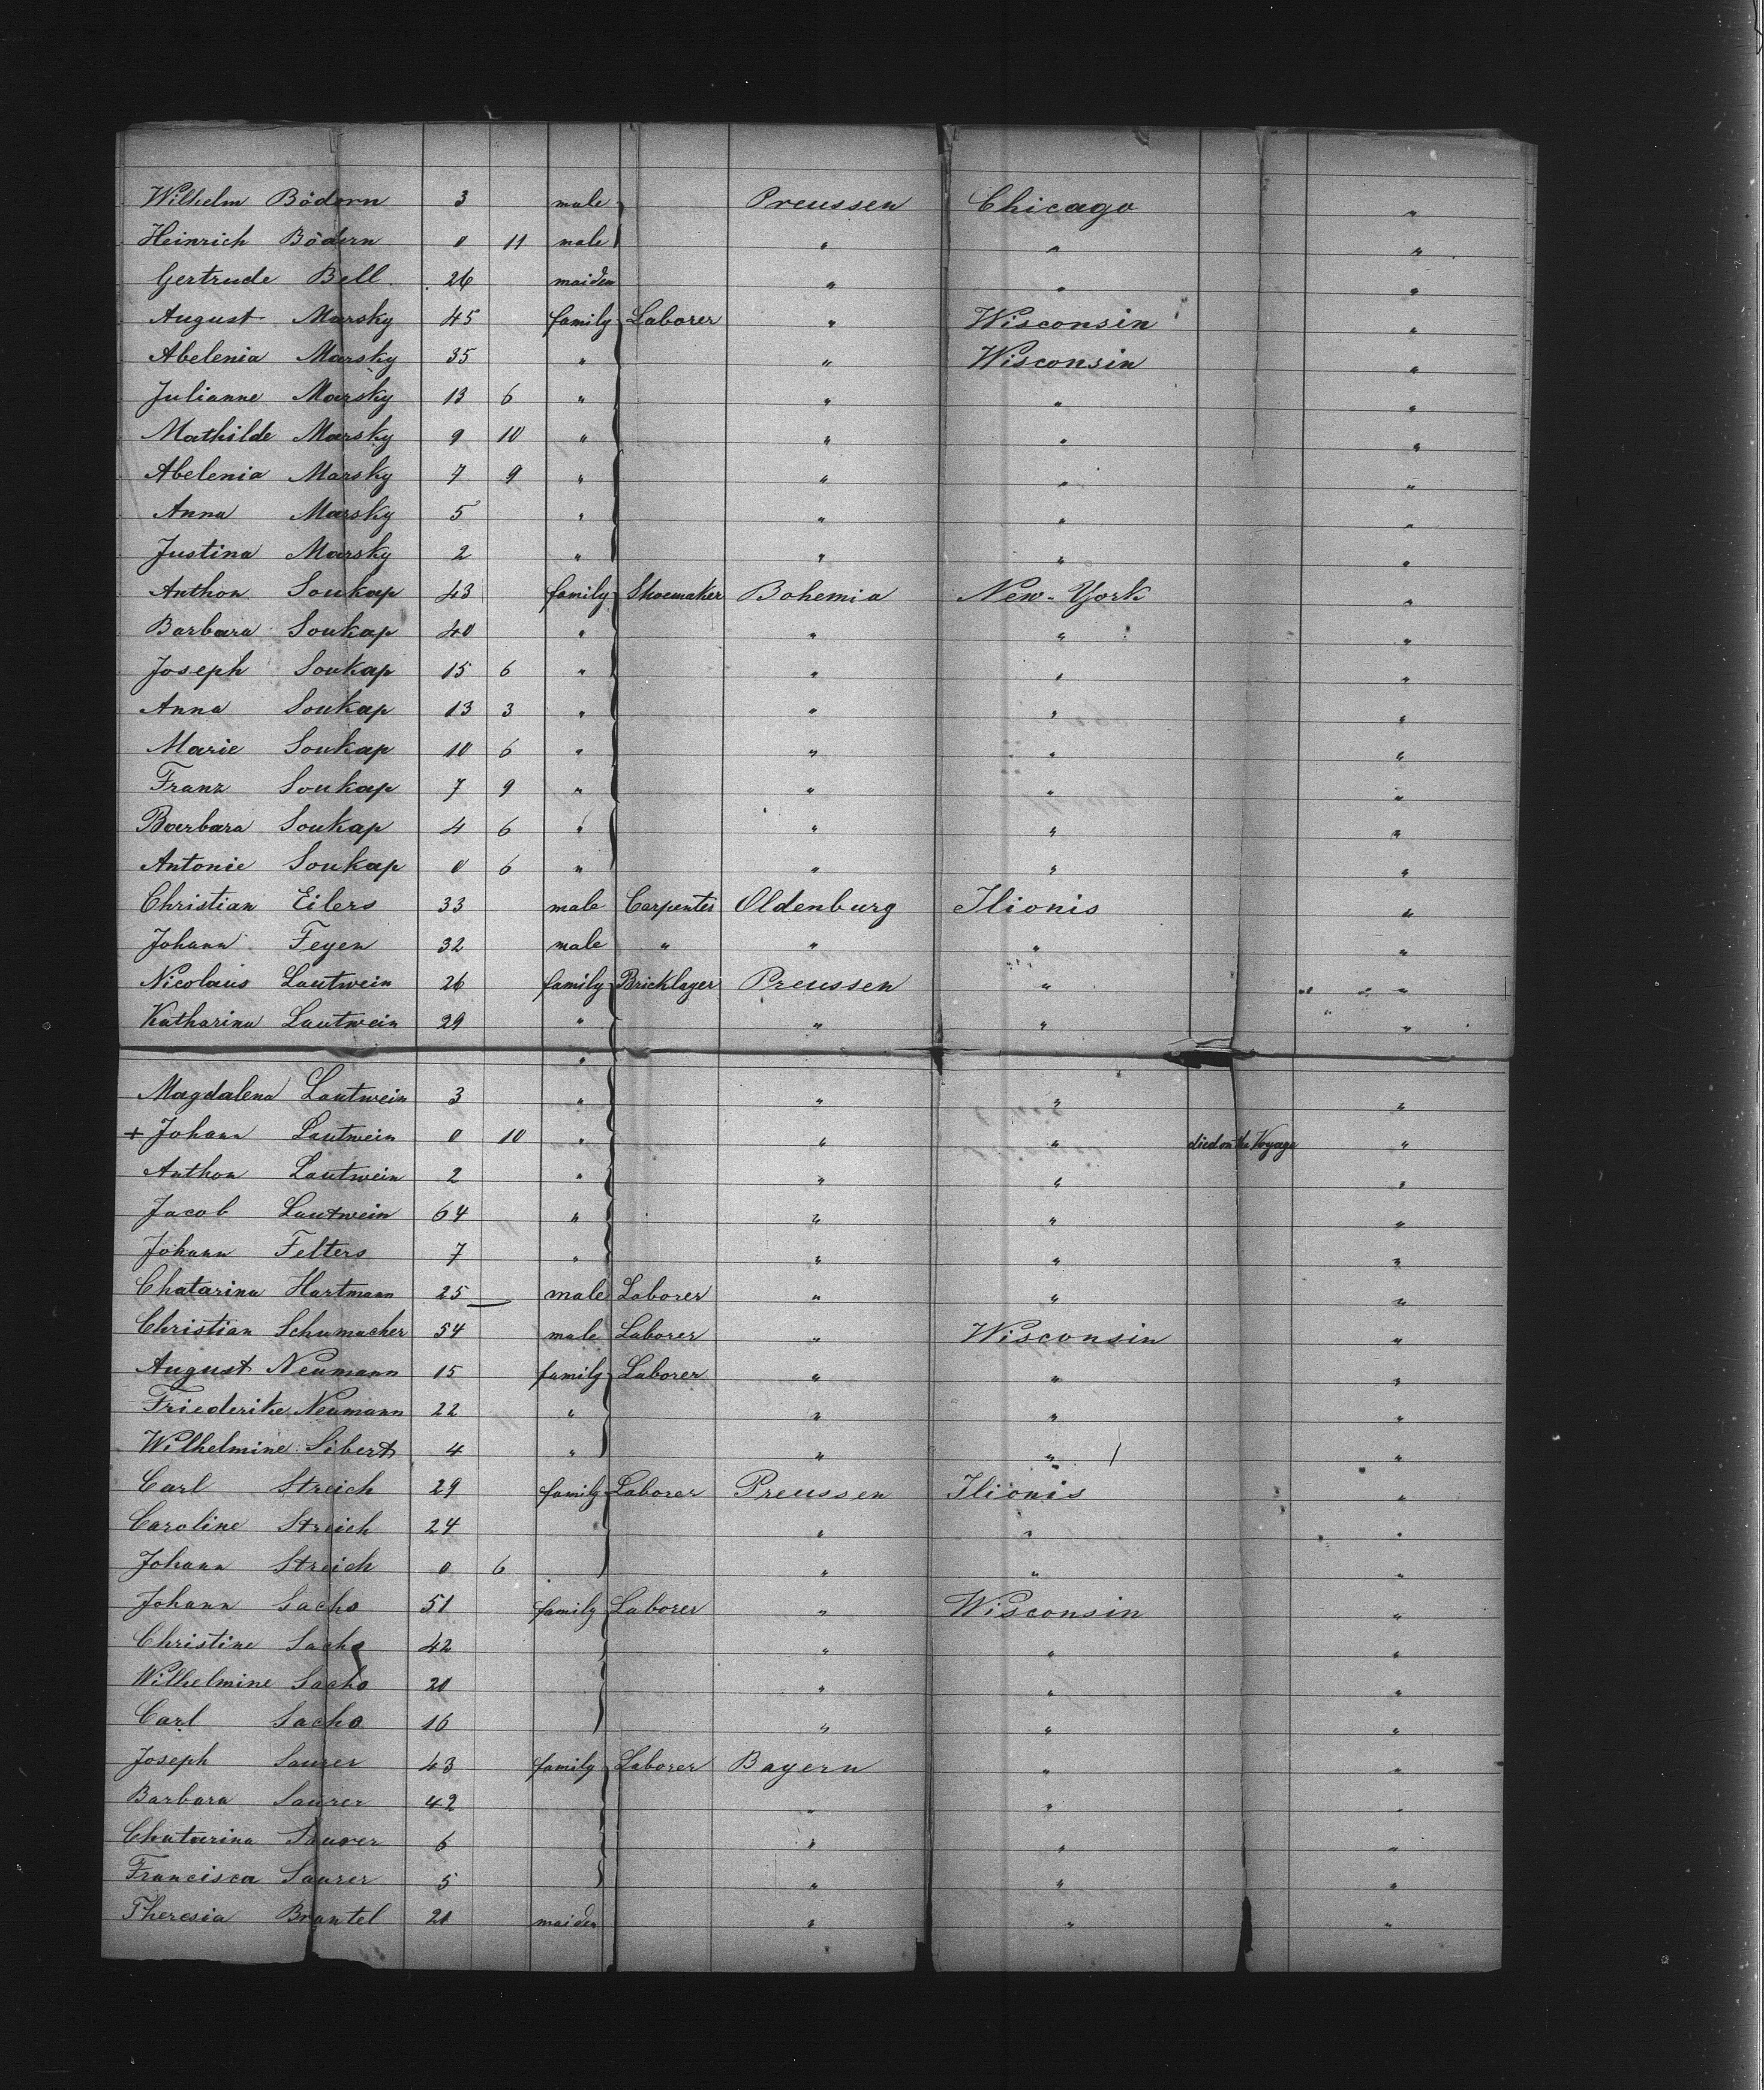 Wilhelm Bödern 3 male Preussen Chicago "
Heinrich Bödern 0 11 male " " "
Gertrude Bell 26 maiden " " "
August Marsky 45 family Laborer " Wisconsin "
Abelenia Marsky 35 " " Wisconsin "
Julianne Marsky 13 6 " " " "
Mathilde Marsky 9 10 " " " "
Abelenia Marsky 7 9 " " " "
Anna Marsky 5 " " " "
Justina Marsky 2 " " " "
Anthon Soukap 43 family Shoemaker Bohemia New-York "
Barbara Soukap 40 " " " "
Joseph Soukap 15 6 " " " "
Anna Soukap 13 3 " " " "
Marie Soukap 10 6 " " " "
Franz Soukap 7 9 " " " "
Baerbara Soukap 4 6 " " " "
Antonie Soukap 0 6 " " " "
Christian Eilers 33 male Carpenter Oldenburg Ilionis "
Johann Feyen 32 male " " " "
Nicolaus Lautwein 26 family Bricklayer Preussen " "
Katharina Lautwein 29 " " " "
"
Magdalena Lautwein 3 " " " "
+ Johann Lautwein 0 10 " " " died on the Voyage "
Anthon Lautwein 2 " " " "
Jacob Lautwein 64 " " " "
Johann Felters 7 " " " "
Chatarina Hartmann 25 male Laborer " " "
Christian Schumacher 54 male Laborer " Wisconsin "
August Neumann 15 family Laborer " " "
Friederike Neumann 22 " " " "
Wilhelmine Sibert 4 " " " "
Carl Streich 29 family Laborer Preussen Ilionis "
Caroline Streich 24 " " "
Johann Streich 0 6 " " "
Johann Sacho 51 family Laborer " Wisconsin "
Christine Sacho 42 " " "
Wilhelmine Sacho 21 " " "
Carl Sacho 16 " " "
Joseph Saurer 43 family Laborer Bayern " "
Barbara Saurer 42 " " "
Chatarina Saurer 6 " " "
Francisca Saurer 5 " " "
Theresia Brantel 21 maiden " " "